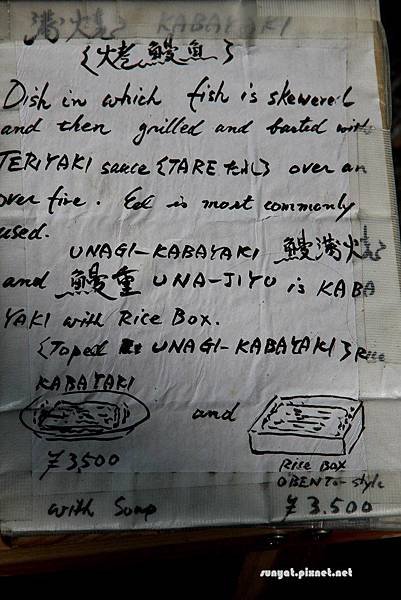 蒲焼 KABAYAKI
{烤鰻魚}
Dish in which fish is skewered
and then grilled and basted with
TERIYAKI sauce {TARE たれ} over an
over fire. Eel is most commonly
used.
UNAGI-KABAYAKI 鰻蒲焼
and 鰻重 UNA-JIYU is KABA
YAKI with Rice Box.
{Toped UNAGI-KABAYAKI} Rice
KABAYAKI
and
¥3,500
Rice Box
OBENTO-style
with Soup ¥3.500
sunyat.pixnet.net